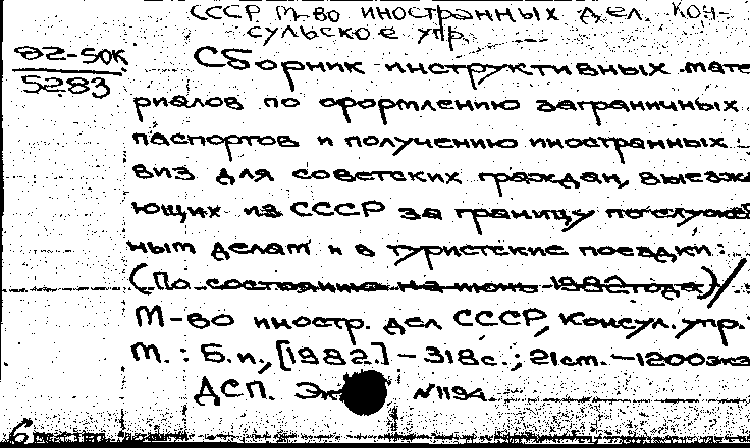 СССР М-во иностранных дел. Кон-
сульское упр.
82-50К
5283
Сборник инструктивных мате
риалов по оформлению заграничных
паспортов и получению иностранных
виз для советских граждан, выезжа
ющих из СССР за границу по служеб
ным делам и в туристские поездки:
(По состоянию на июнь 1982 года)/
М-во иностр. дел СССР, Консул. упр.
М.: Б.и., [1982.] – 318с.; 21см. – 1200экз
ДСП. Эк N1194.
6